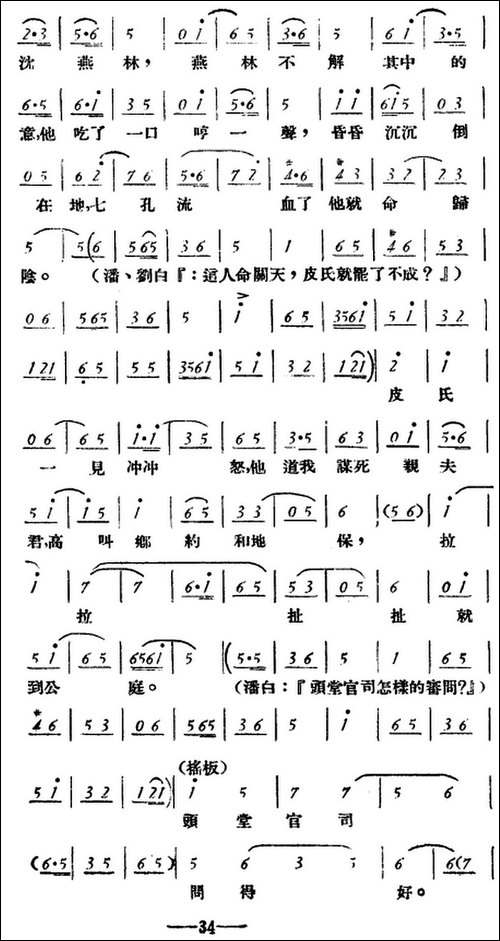 2·3 | 5·6 | 5 | 0 i | 6 5 | 3·6 | 5 | 6 i | 3·5 |
沈 燕 林, 燕 林 不 解 其中 的
6·5 | 6·i | 3 5 | 0 i | 5·6 | 5 | i i | 6i5 | 0 3
意,他 吃了 一口 哼 一 聲, 昏昏 沉沉 倒
0 5 | 6 2 | 7 6 | 5·6 | 7 2 | 4·6 | 4 3 | 3 2 | 2 3
在 地,七 孔 流 血了 他就 命 歸
5 | 5(6 | 565 | 3 6 | 5 | 1 | 6 5 | 4 6 | 5 3
陰。 (潘、劉白『:這人命關天,皮氏就罷了不成?』)
0 6 | 565 | 3 6 | 5 | i | 6 5 | 3561 | 5 i | 3 2
121 | 6 5 | 5 5 | 3561 | 5 i | 3 2 | 121) | 2 | i
皮 氏
0 6 | 6 5 | i·i | 3 5 | 6 5 | 3·5 | 6 3 | 0 i | 5·6
一 見 冲冲 怒,他 道我 謀死 親夫
5 i | i 5 | i | 6 5 | 3 3 | 0 5 | 6 | (5 6) | i
君,高 叫 鄉 約 和地 保, 拉
i | 7 | 7 | 6·i | 6 5 | 5 3 | 0 5 | 6 | 0 i
拉 扯 扯 就
5 i | 6 5 | 6561 | 5 | (5·5 | 3 6 | 5 | 1 | 6 5
到公 庭。 (潘白:『頭堂官司怎樣的審問?』)
4 6 | 5 3 | 0 6 | 565 | 3 6 | 5 | i | 6 5 | 3 6
(搖板)
5 i | 3 2 | 121) | i 5 | 7 7 | 5 6
頭 堂 官 司
(6·5 | 3 5 | 6 5) | 5 6 3 5 | 6 6(7
問 得 好。
—34—